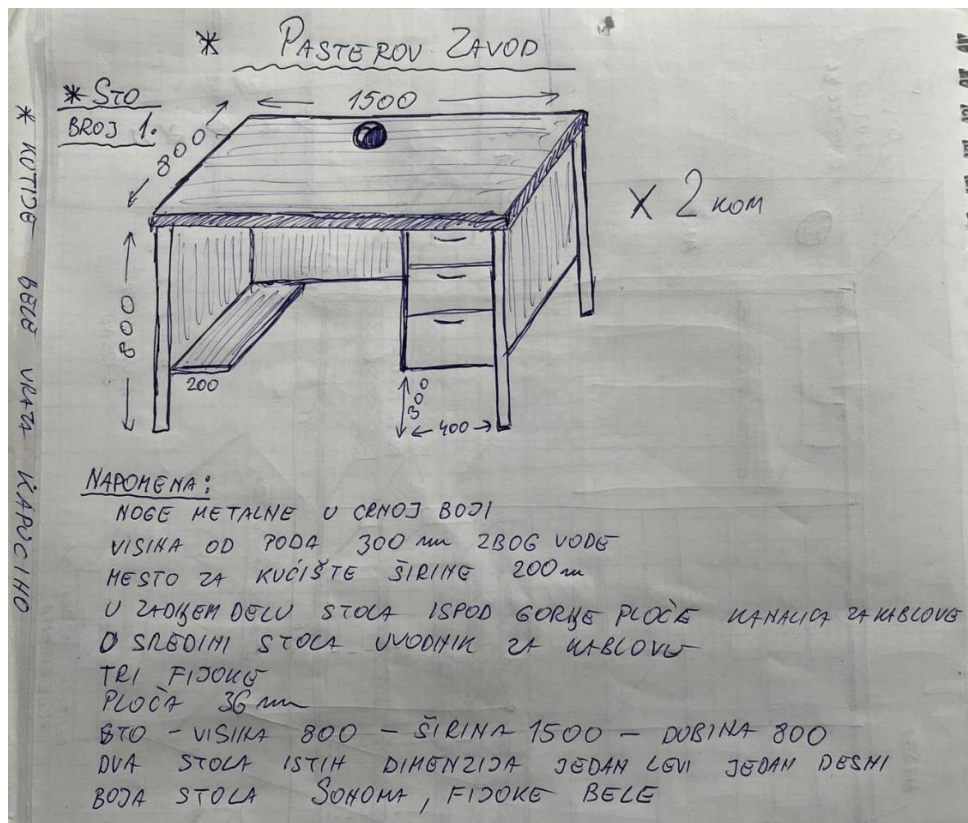 * PASTEROV ZAVOD
* STO
BROJ 1.
1500
800
800
X 2 KOM
200
300
400
NAPOMENA:
NOGE METALNE U CRNOJ BOJI
VISINA OD PODA 300 mm ZBOG VODE
MESTO ZA KUĆIŠTE ŠIRINE 200 m
U ZADNJEM DELU STOLA ISPOD GORNJE PLOČE KANALICA ZA KABLOVE
U SREDINI STOLA UVODNIK ZA KABLOVE
TRI FIJOKE
PLOČA 36 mm
STO - VISINA 800 - ŠIRINA 1500 - DUBINA 800
DVA STOLA ISTIH DIMENZIJA JEDAN LEVI JEDAN DESNI
BOJA STOLA SONOMA, FIJOKE BELE
* KUTIJE BELE VRATA KAPUCINO